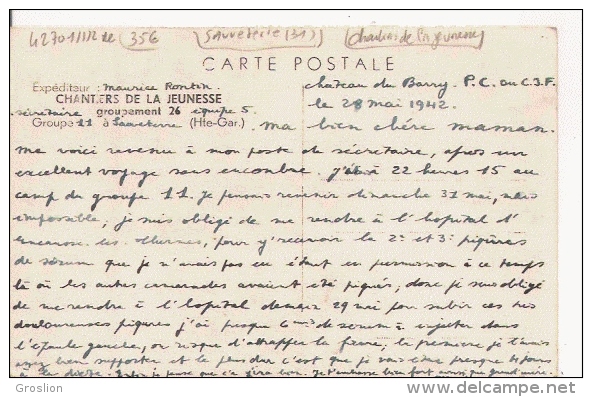 42701/1/2 de 35€ Sauveterre (31) Chantiers de la Jeunesse
CARTE POSTALE
Expéditeur : Maurice Rontin
CHANTIERS DE LA JEUNESSE
secrétaire groupement 26 équipe 5
Groupe 11 à Sauveterre (Hte-Gar.)
château du Barry. P.C. du C.J.F.
le 28 mai 1942.
ma bien chère maman.
me voici revenu à mon poste de secrétaire, après un
excellent voyage sans encombre. j'étais à 22 heures 15 au
camp du groupe 11. Je pensais revenir dimanche 31 mai, mais
impossible; je suis obligé de me rendre à l'hopital d'
Encausse les thermes, pour y recevoir la 2e et 3e piqûres
de sérum que je n'avais pas eu étant en permission à ce temps
là où les autres camarades avaient été piqués; donc je suis obligé
de me rendre à l'hopital demain 29 mai pour subir ces très
douloureuses piqures j'ai presque 6 de sérum à injecter dans
l'épaule gauche, on risque d'attrapper la fièvre, la première je l'avais
assez bien supportée et le plus dur c'est que je vais être presque 4 jours
à la diète. Enfin je pense que ça ira bien. Je t'embrasse bien fort ainsi que grand'mère.
Groslion
delcampe.net